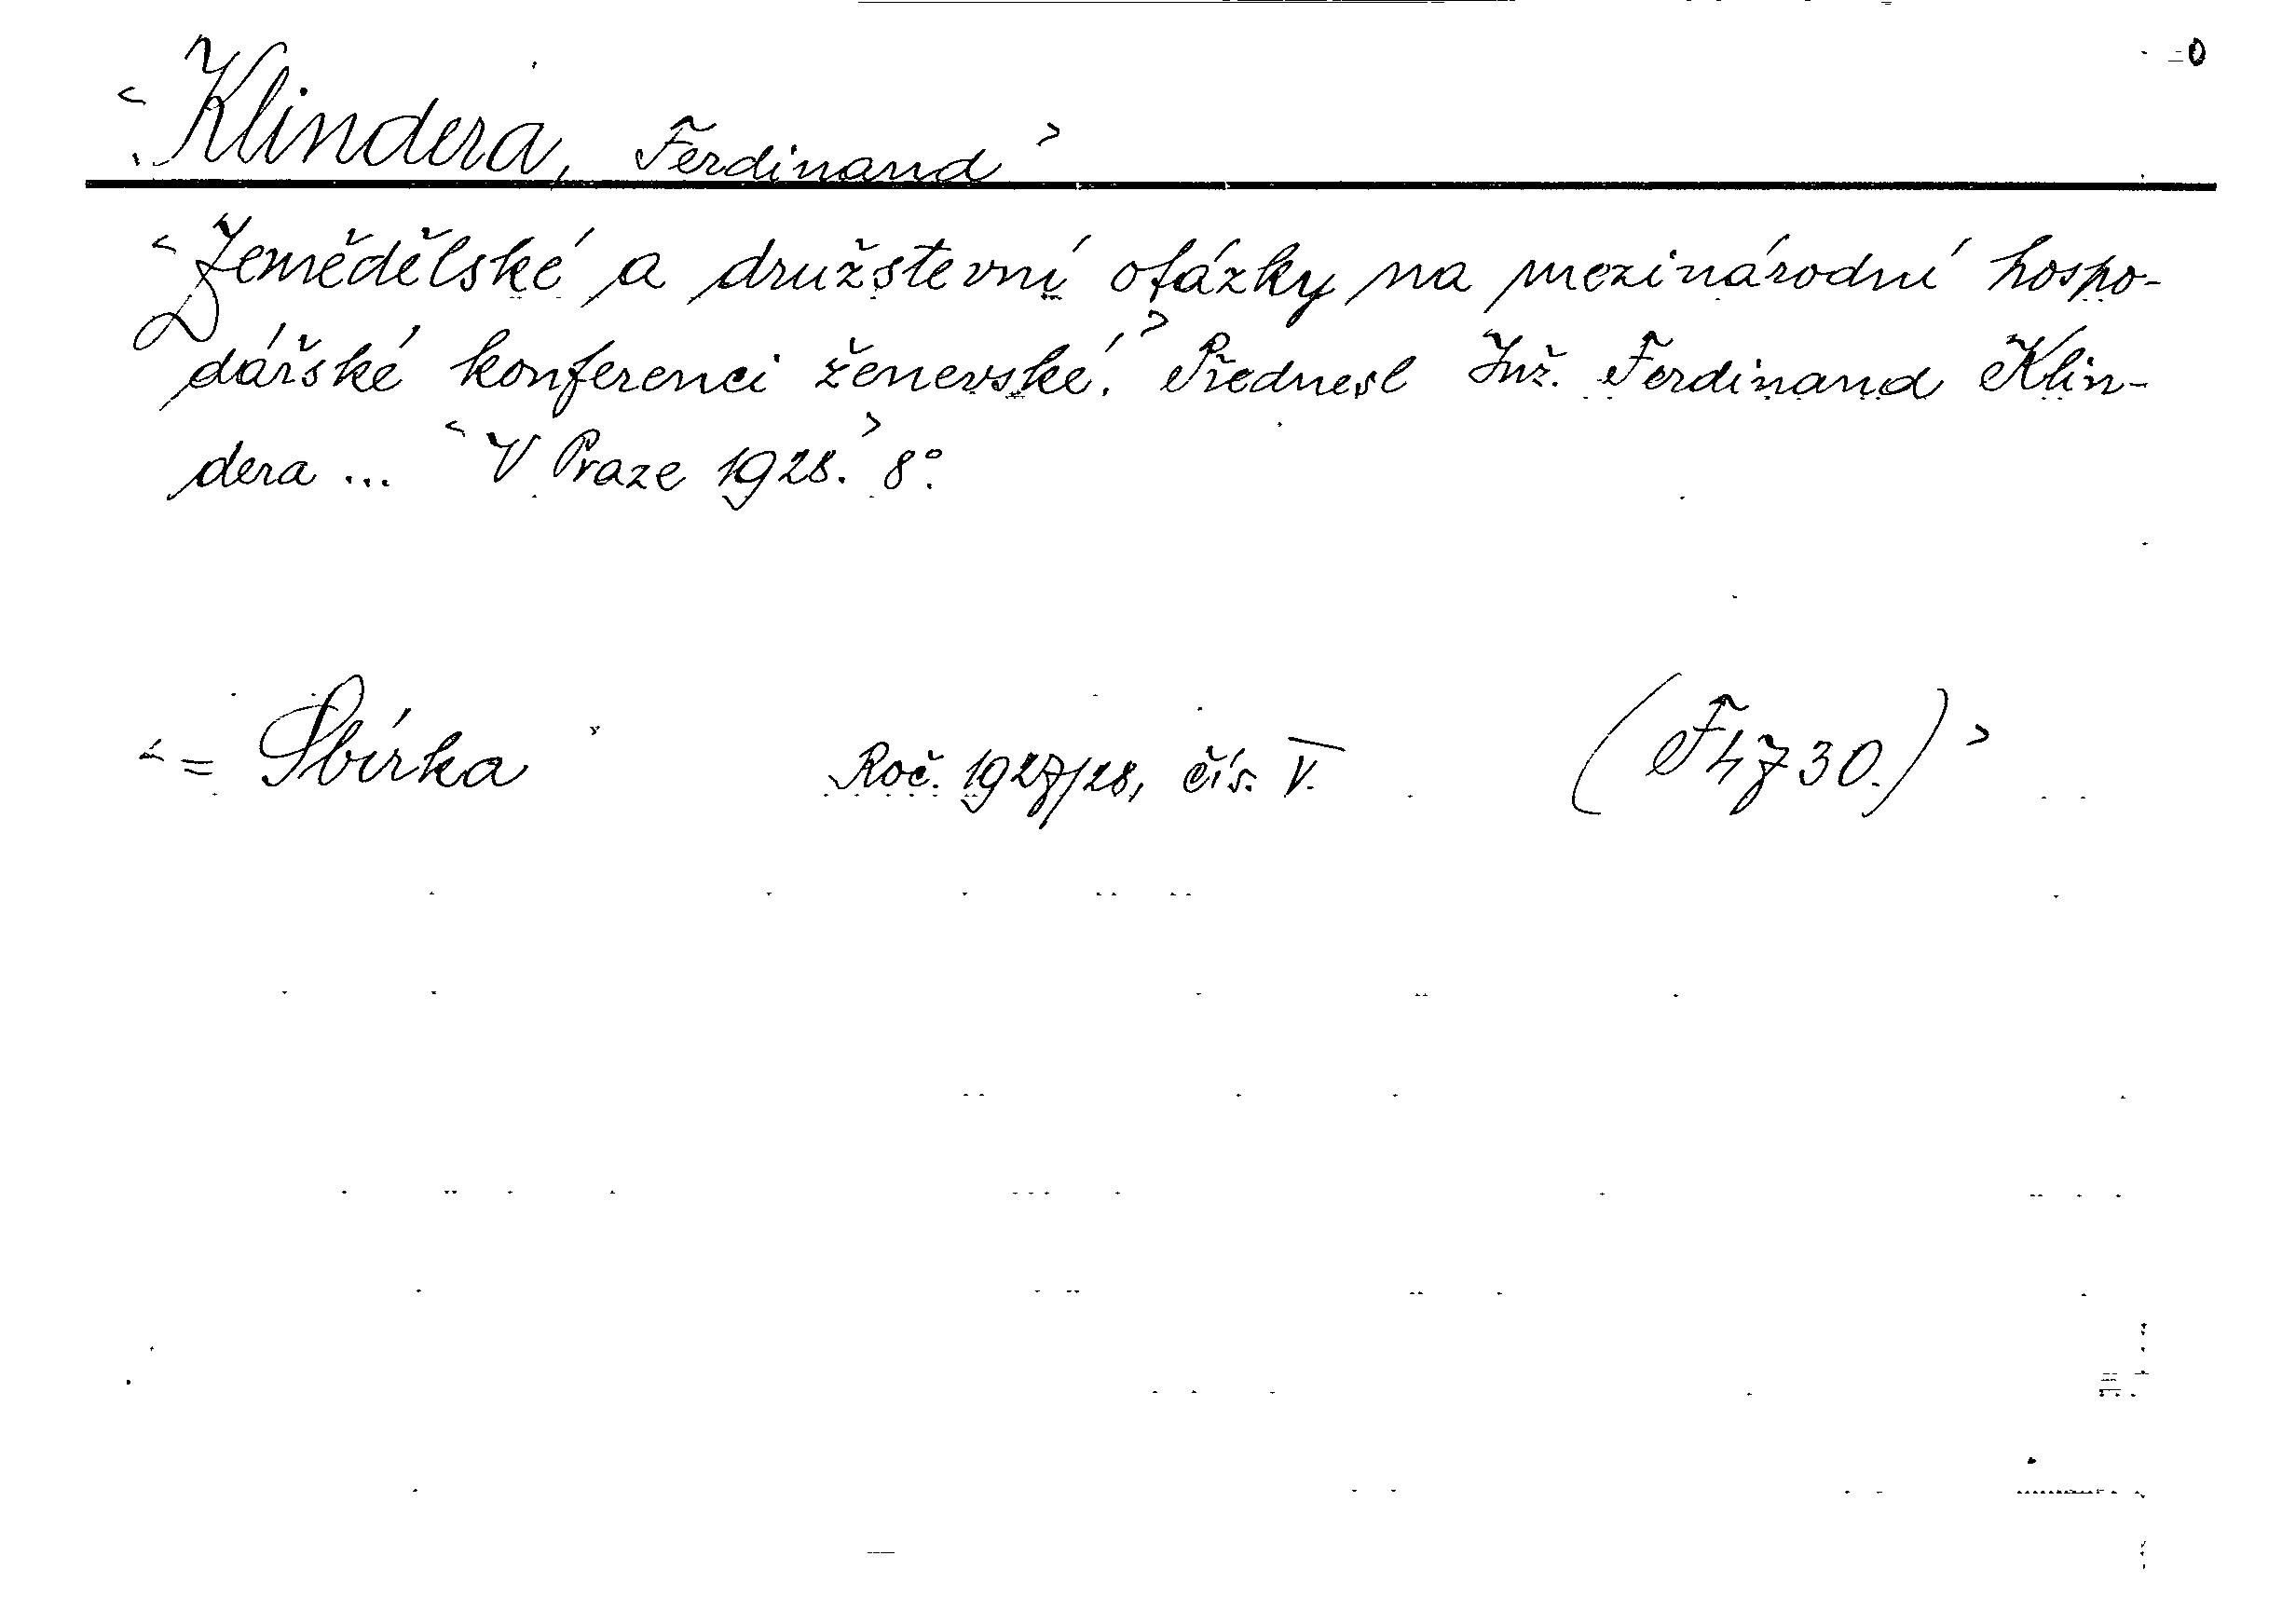 <Klindera, Ferdinand>
<Zemědělské a družstevní otázky na mezinárodní hospo-
dářské konferenci ženevské.> Přednesl Inž. Ferdinand Klin-
dera ... <V Praze 1928.> 8°.
<= Sbírka Roč. 1927/28, čís. V. (F 4730.)>